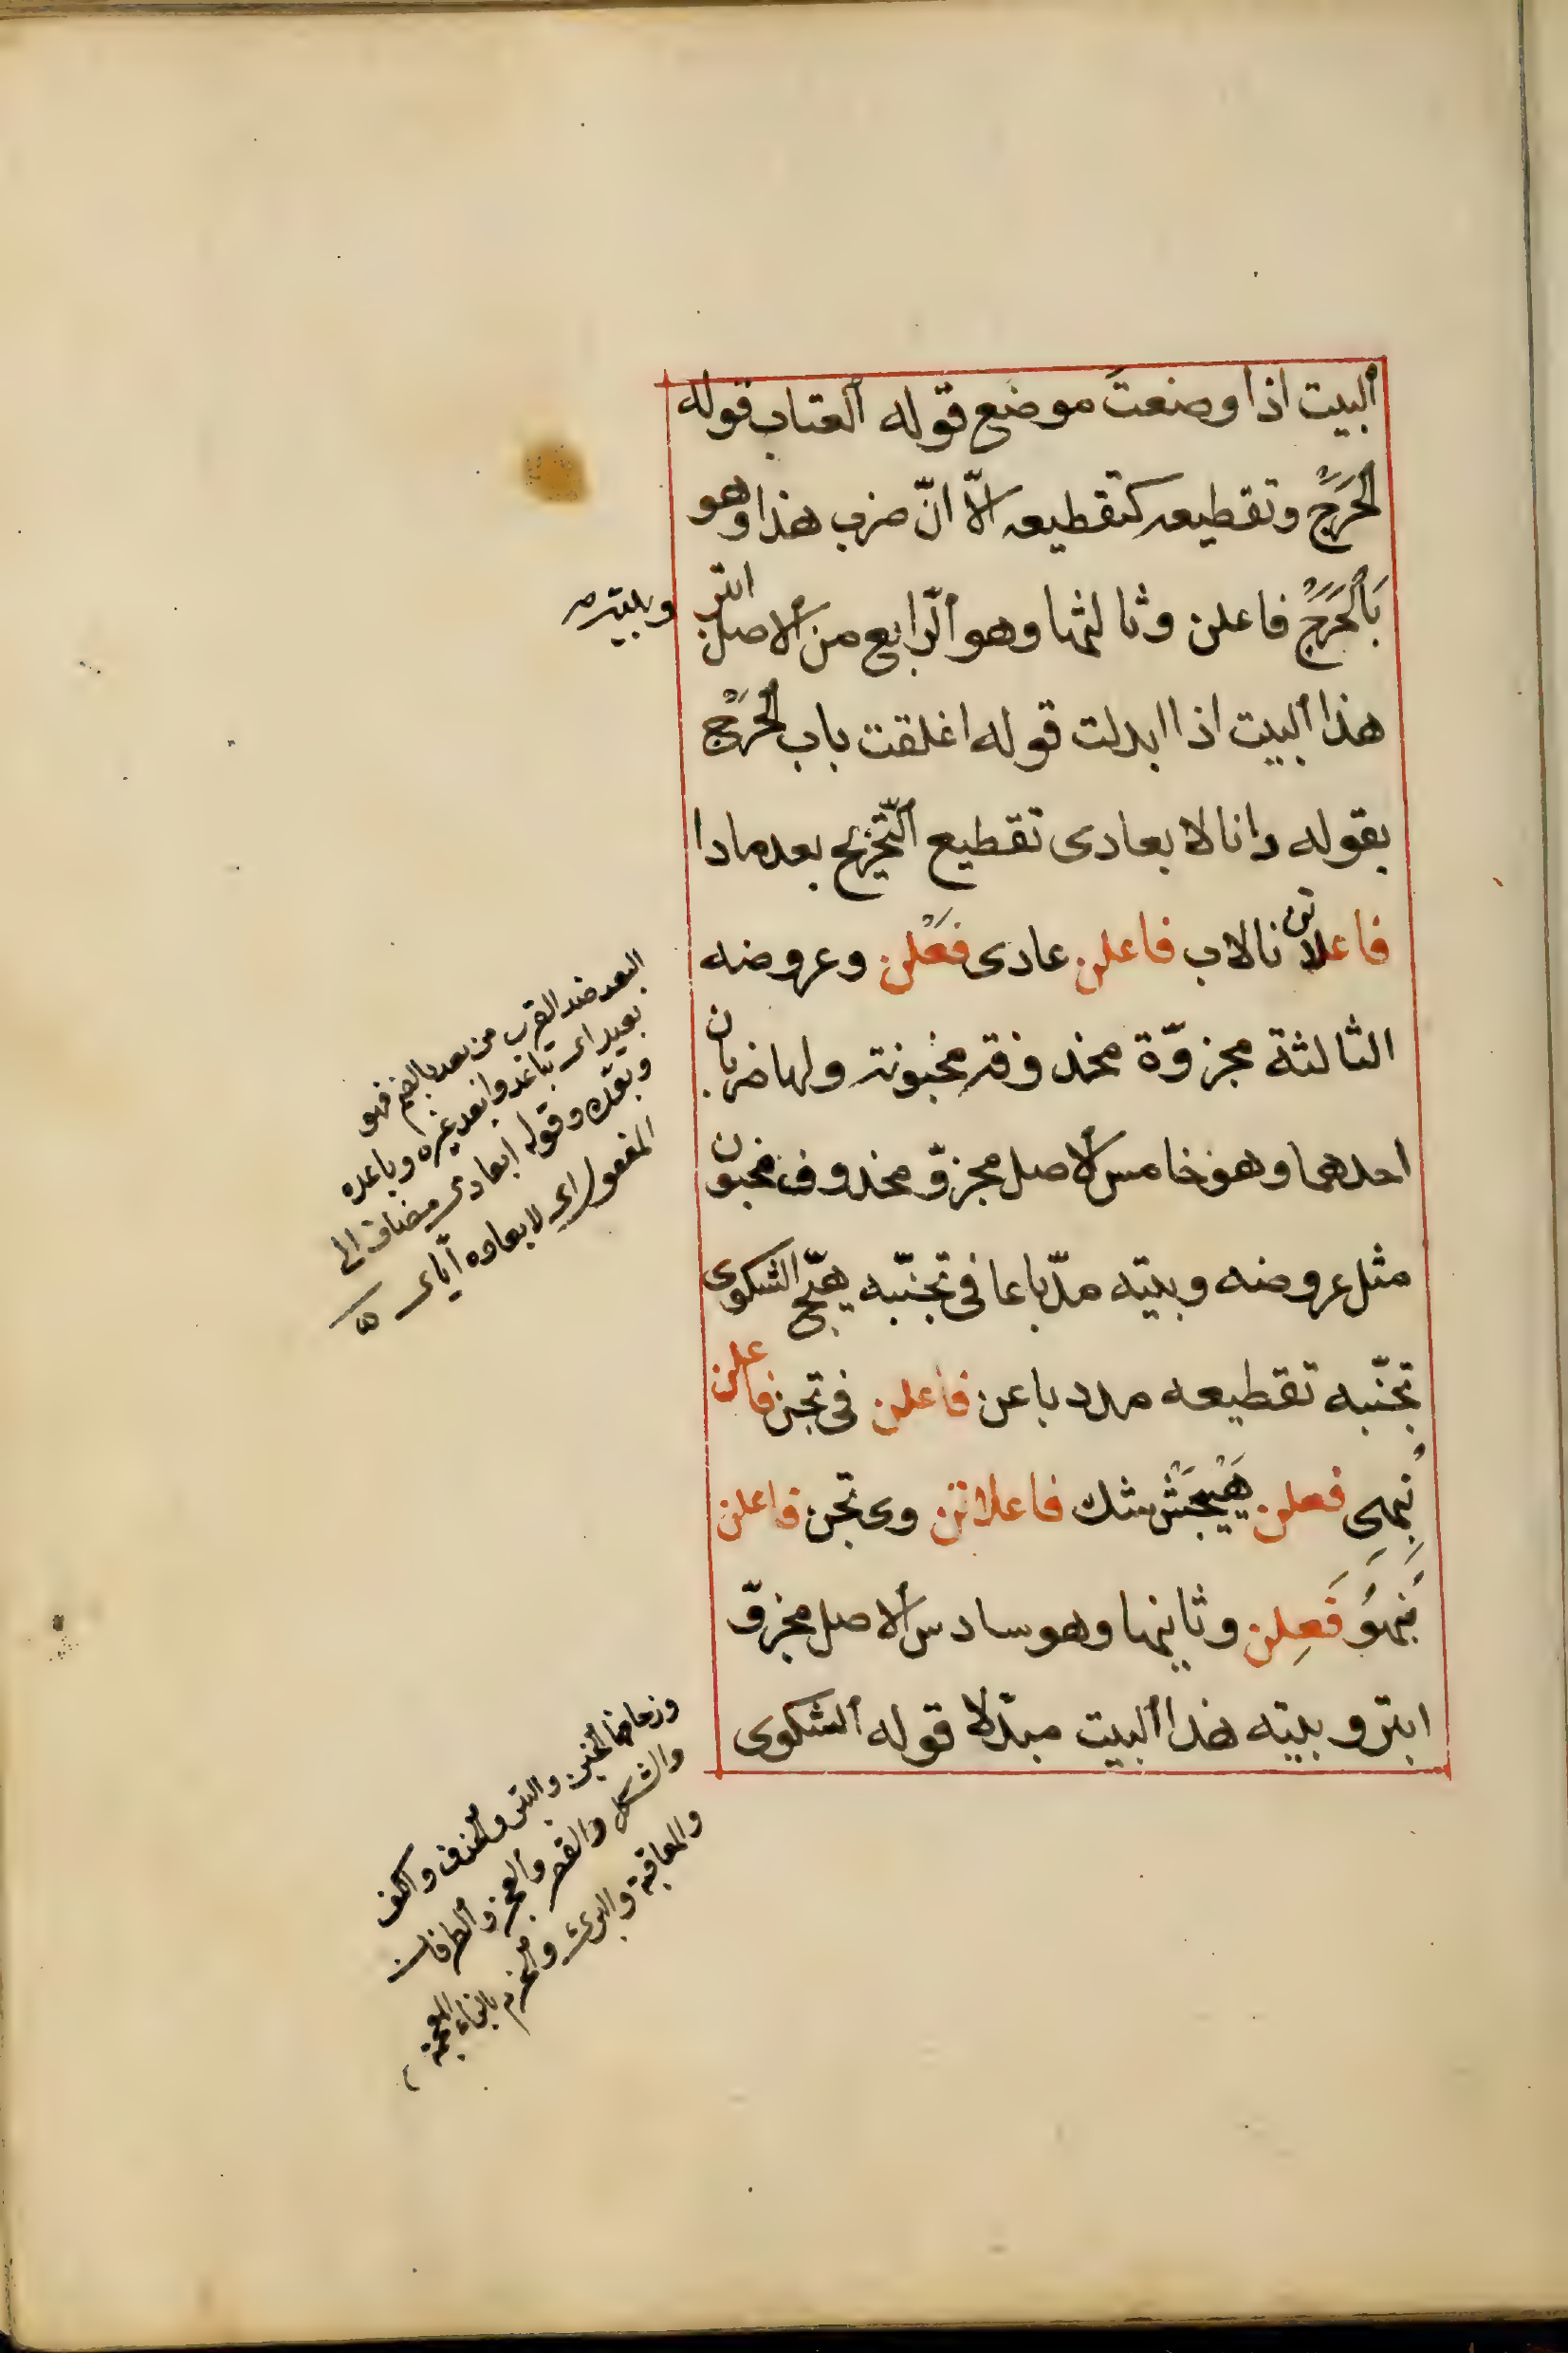 البيت اذا وضعتَ موضع قوله العتاب قوله
الحَرَجْ وتقطيعه كتقطيعه الّا انّ ضرب هذا وهو
بَالحَرَجْ فاعلن وثالثها وهو الرّابع من الاصل ابتر وبيته
هذا البيت اذا ابدلت قوله اغلقت باب الحَرَجْ
بقوله دانا لابعادى تقطيع التّخريج بعدمادا
فاعلاتن نالاب فاعلن عادى فعْلن وعروضه
الثالثة مجزوّة محذوفة مخبونة ولها ضربان
احدهما وهو خامس الاصل مجزوّ محذوف مخبون
مثل عروضه وبيته مدّ باعا فى تجنّبه هيّج الشكوى
تجنّبه تقطيعه مدد باعن فاعلن فى تجن فاعلن
نُبِهِى فعلن هَيْيَجَشْ شك فاعلاتن وى تجن فاعلن
نُبُهُو فَعِلن وثانيها وهو سادس الاصل مجزوّ
ابتر وبيته هذا البيت مبدّلا قوله الشكوى
البعد ضد القرب من بعد بالضم فهو
بعيد اى تباعد وابعد غيره وباعده
وبعّده وقوله ابعادى مضاف الى
المفعول اى لابعاده ايّاى
وزحافها الخبن والبتر والحذف والكف
والشكل والقصر والعجز والطرفان
والمعاقبة والبرئ والخرم بالخاء المعجمة